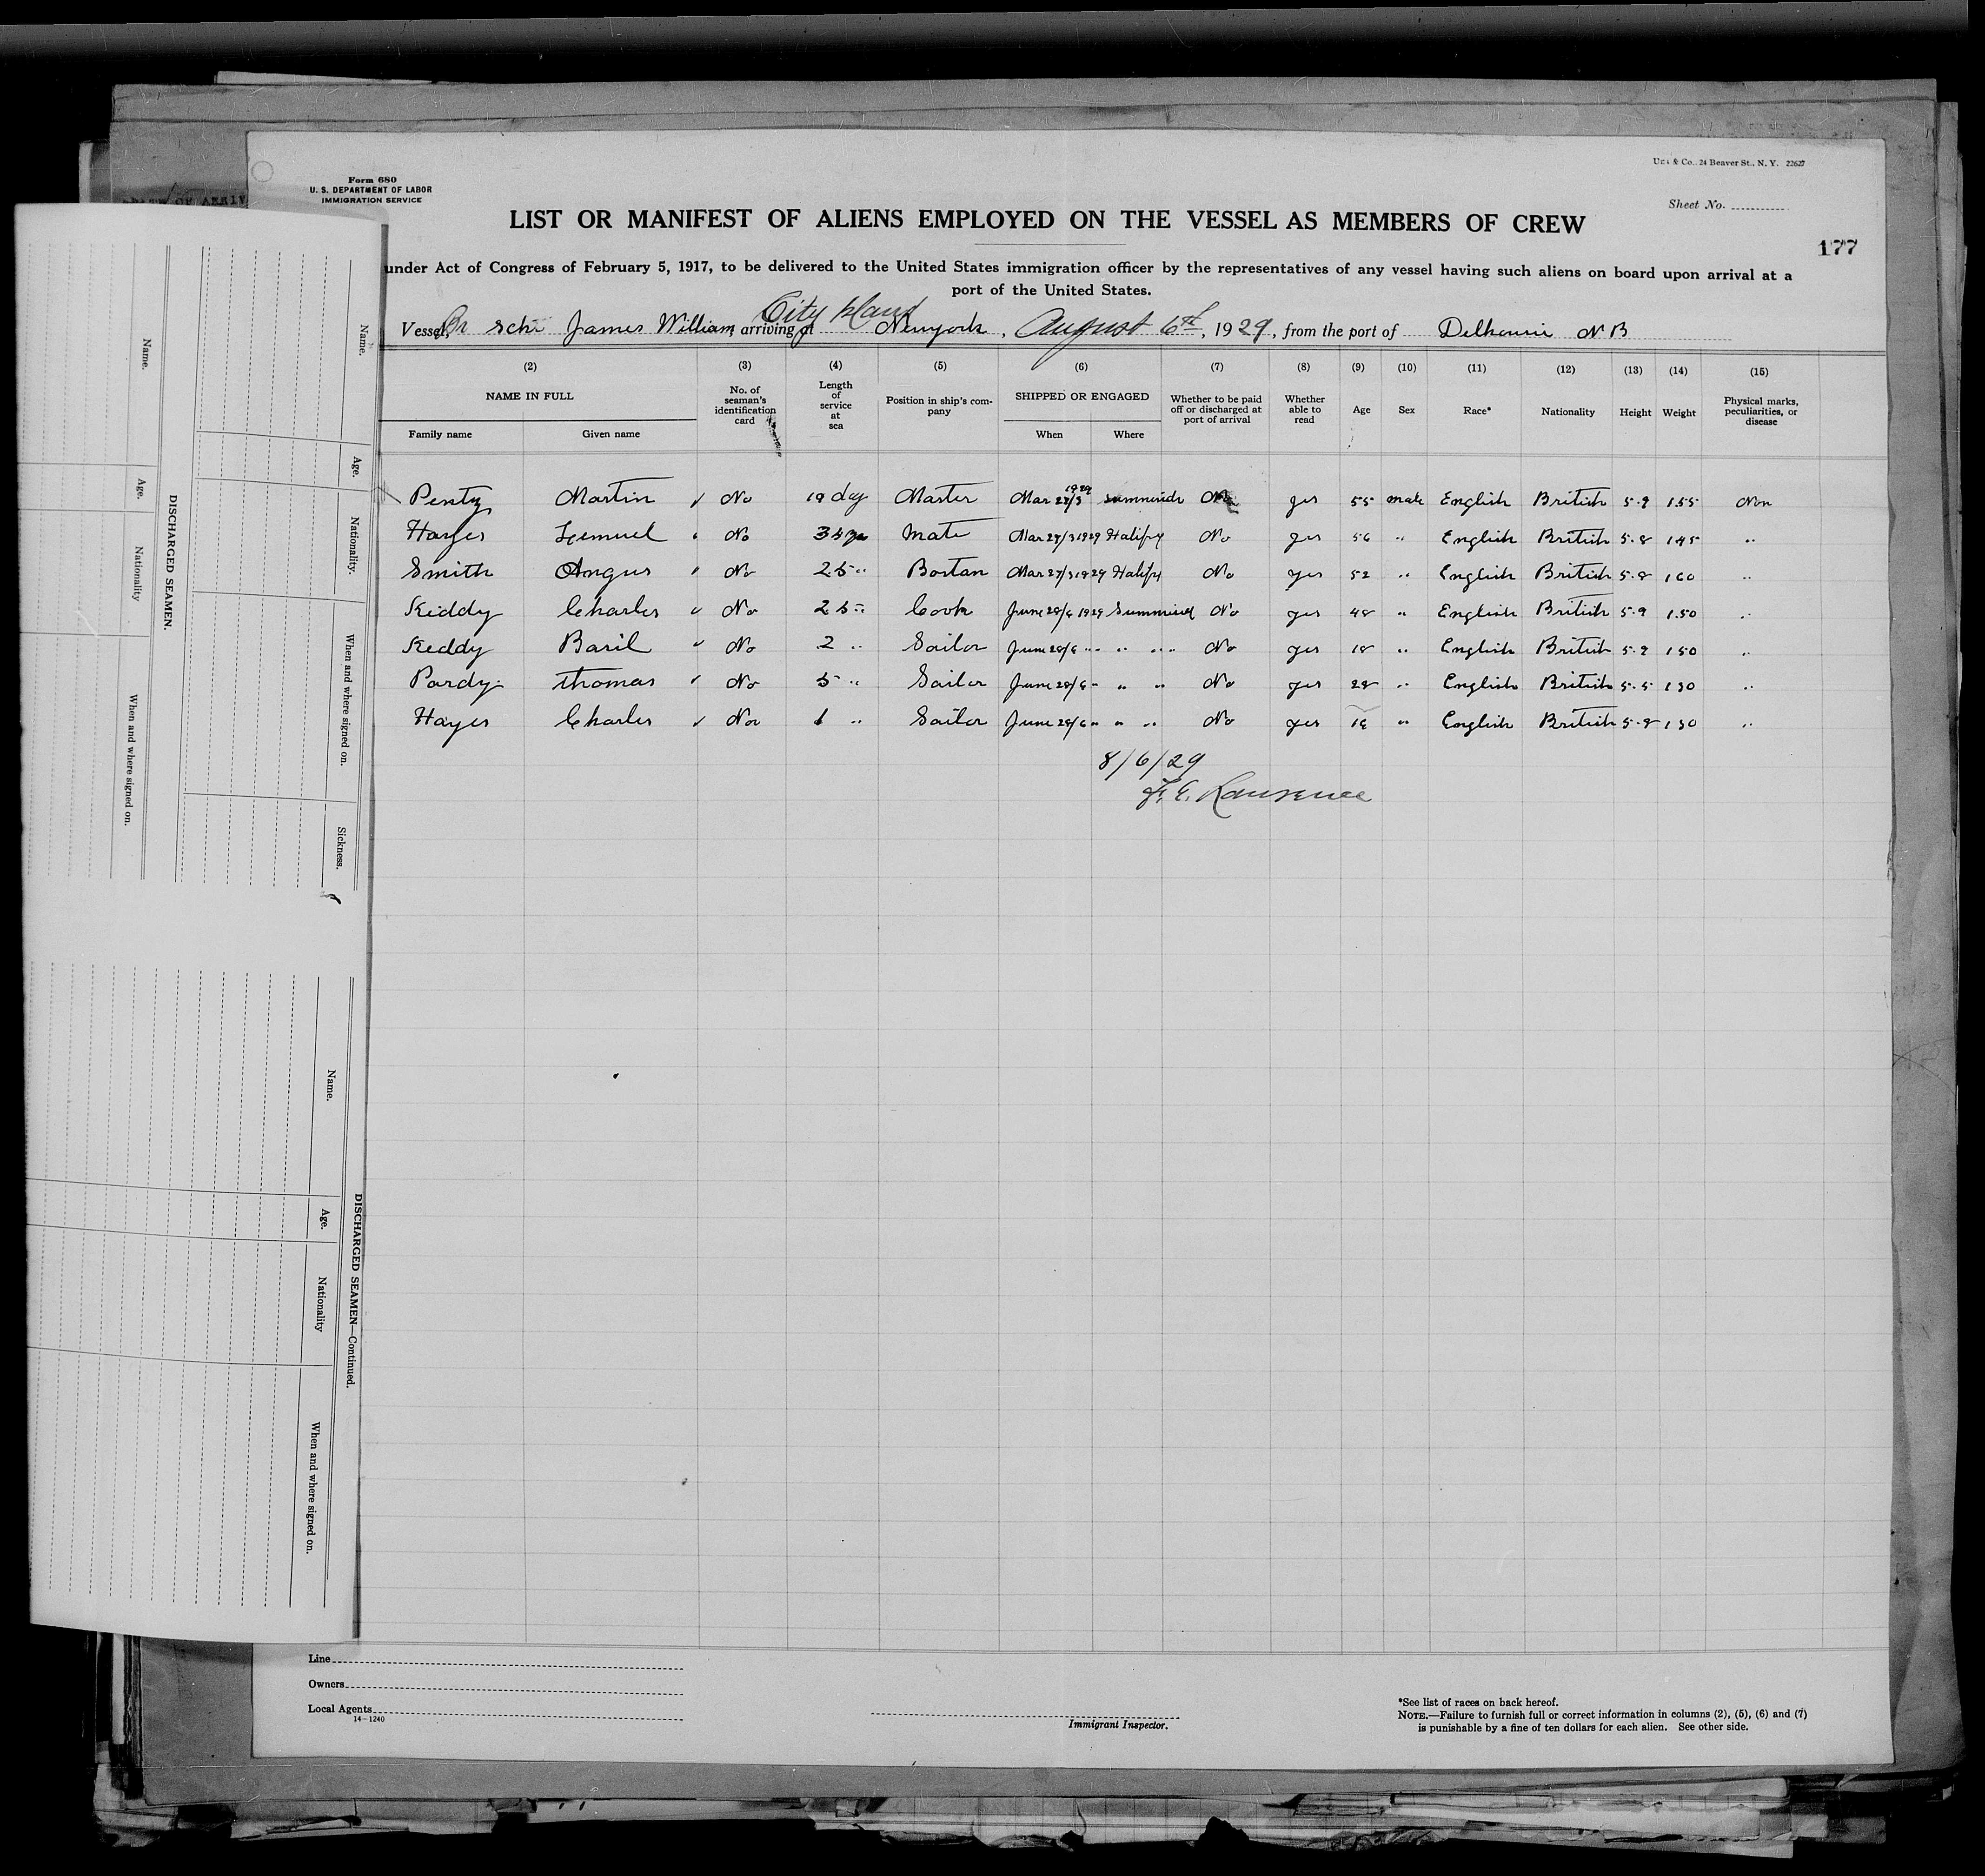 Unz & Co., 24 Beaver St., N. Y. 22627
Form 680
U. S. DEPARTMENT OF LABOR
IMMIGRATION SERVICE
Sheet No.
LIST OR MANIFEST OF ALIENS EMPLOYED ON THE VESSEL AS MEMBERS OF CREW
177
under Act of Congress of February 5, 1917, to be delivered to the United States immigration officer by the representatives of any vessel having such aliens on board upon arrival at a
port of the United States.
City Island
Vessel, Br schr James William, arriving at Newyork, August 6th, 1929, from the port of Delhousie N B
(2) (3) (4) (5) (6) (7) (8) (9) (10) (11) (12) (13) (14) (15)
NAME IN FULL No. of seaman's identification card Length of service at sea Position in ship's company SHIPPED OR ENGAGED Whether to be paid off or discharged at port of arrival Whether able to read Age Sex Race* Nationality Height Weight Physical marks, peculiarities, or disease
Family name Given name When Where
Penty Martin No 19 day Master Mar 27/3 1929 No yes 55 male English British 5-9 155 Non
Hayes Lemuel No Mate Mar 27/3 1929 Halifx No yes 56 " English British 5-8 145 "
Smith Angus No 25 " Bostan Mar 27/3 1929 Halifx No yes 52 " English British 5-8 160 "
Keddy Charles No 25 " Cook June 28/6 1929 No yes 48 " English British 5-9 150 "
Keddy Basil No 2 " Sailor June 28/6 " " " No yes 18 " English British 5-9 150 "
Pardy thomas No 5 " Sailor June 28/6 " " " No yes 28 " English British 5-5 130 "
Hayes Charles No 1 " Sailor June 28/6 " " " No yes " English British 5-8 130 "
8/6/29
Lawrence
Name.
Age.
Nationality.
When and where signed on.
Sickness.
DISCHARGED SEAMEN.
Name.
Age.
Nationality
When and where signed on.
DISCHARGED SEAMEN—Continued.
Name.
Age.
Nationality
When and where signed on.
Line
Owners
Local Agents
14-1240
Immigrant Inspector.
*See list of races on back hereof.
NOTE.—Failure to furnish full or correct information in columns (2), (5), (6) and (7)
is punishable by a fine of ten dollars for each alien. See other side.